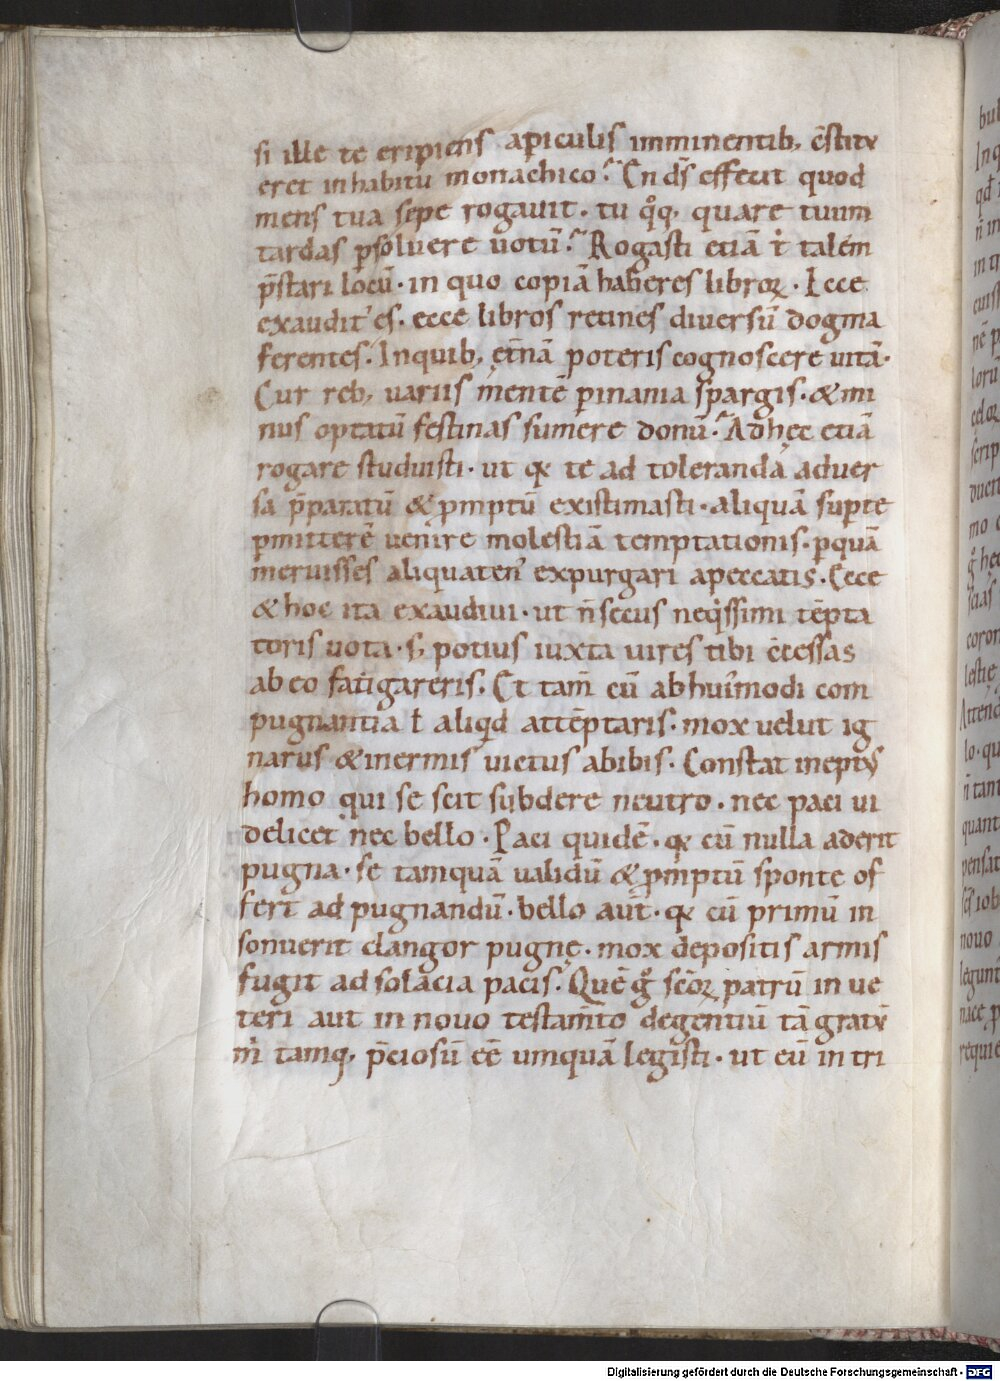 si ille te eripiens apiculis imminentib, c̄stitu
eret inhabitu monachico. En d̄s effecit quod
mens tua sepe rogauit. tu q̊q, quare tuum
tardas p̱soluere uotū. Rogasti etiā t̓ talem
p̄stari locū. in quo copiā haberes libroꝝ. Ecce
exaudit᾽ es. ecce libros retines diuersū dogma
ferentes. Inquib, et̄nā poteris cognoscere uitā.
Cur reb, uariis m̄entē ꝑinania spargis. & mi
nus optatū festinas sumere donū. Adhęc etiā
rogare studuisti. ut qꝛ te ad toleranda aduer
sa p̄paratū & ꝓmptū existimasti. aliquā sup̱te
ꝑmitterē uenire molestiā temptationis. ꝑquā
meruisses aliquaten᾽ expurgari apeccatis. Ecce
& hoc ita exaudiui. ut n̄ secus neq̓ssimi tēpta
toris uota. s; potius iuxta uires tibi c̄cessas
ab eo fatigareris. Et tam̄ cū abhui᾽modi com
pugnantia ł aliqd attēptaris. mox uelut ig
narus & inermis uictus abibis. Constat inept᾽
homo qui se scit subdere neutro. nec paci ui
delicet nec bello. Paci quidē. qꝛ cū nulla aderit
pugna. se tamquā ualidū & ꝓmptū sponte of
fert ad pugnandū. bello aut̄. qꝛ cū primū in
sonuerit clangor pugnę. mox depositis armis
fugit ad solacia pacis. Quē g̊ sc̄oꝝ patrū in ue
teri aut in nouo testam̄to degentiū tā grat᾽
m̓ tamq, p̄ciosū eē umquā legisti. ut eū in tri
Digitalisierung gefördert durch die Deutsche Forschungsgemeinschaft - DFG